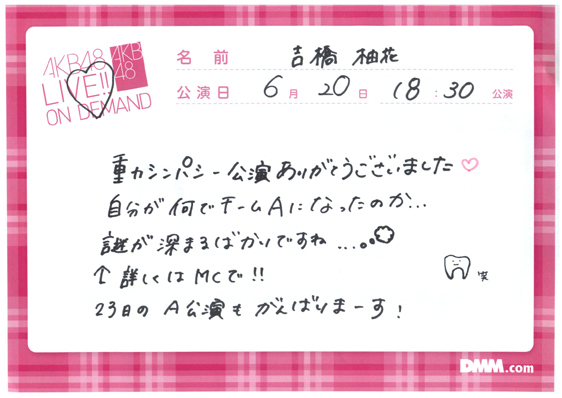 AKB48
LIVE!!
ON DEMAND
AKB
48
名前 吉橋 柚花
公演日 6月20日 18:30公演
重力シンパシー公演ありがとうございました♡
自分が何でチームAになったのか...
謎が深まるばかりですね....
↑詳しくはMCで!!
笑
23日のA公演もがんばりまーす!
DMM.com